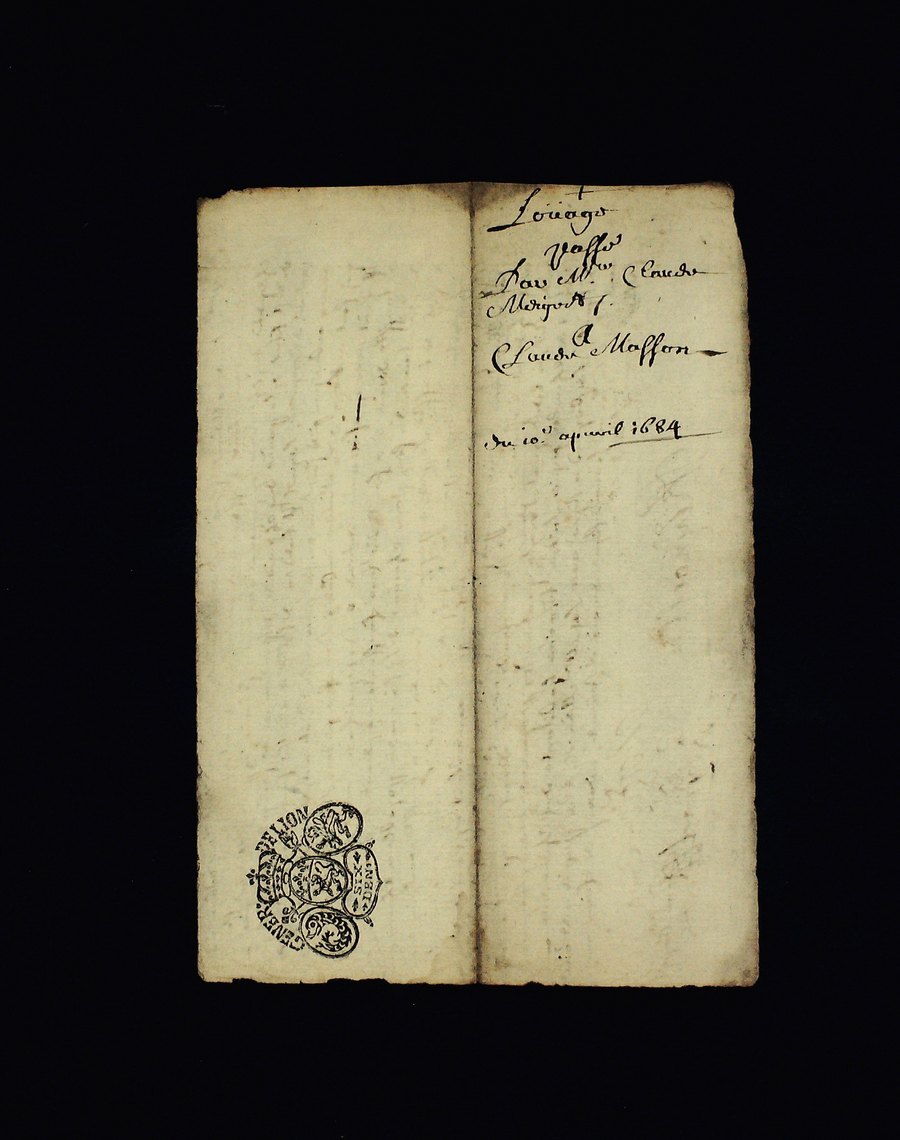 Loüage
Passé
Par Mre Claude
Meigret
A
Claude Masson
du 10e apvril 1684
GENER. DE LION
SIX
DEN.